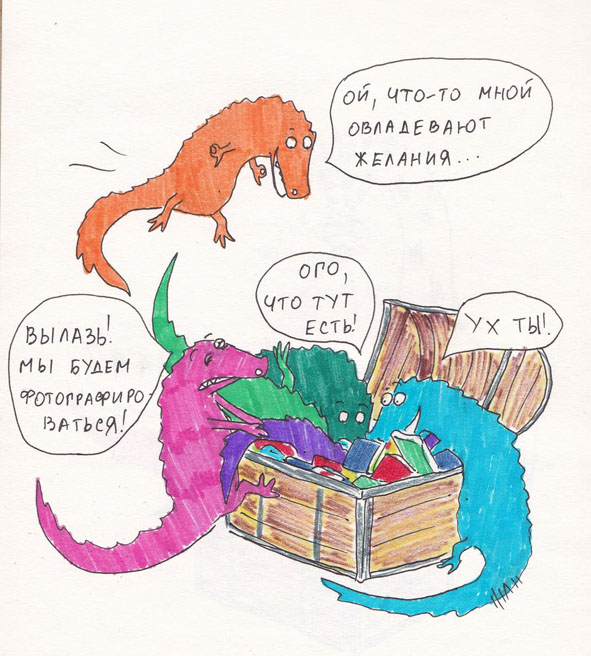 ОЙ, ЧТО-ТО МНОЙ
ОВЛАДЕВАЮТ
ЖЕЛАНИЯ...
ОГО,
ЧТО ТУТ
ЕСТЬ!
УХ ТЫ!
ВЫЛАЗЬ!
МЫ БУДЕМ
ФОТОГРАФИРО-
ВАТЬСЯ!